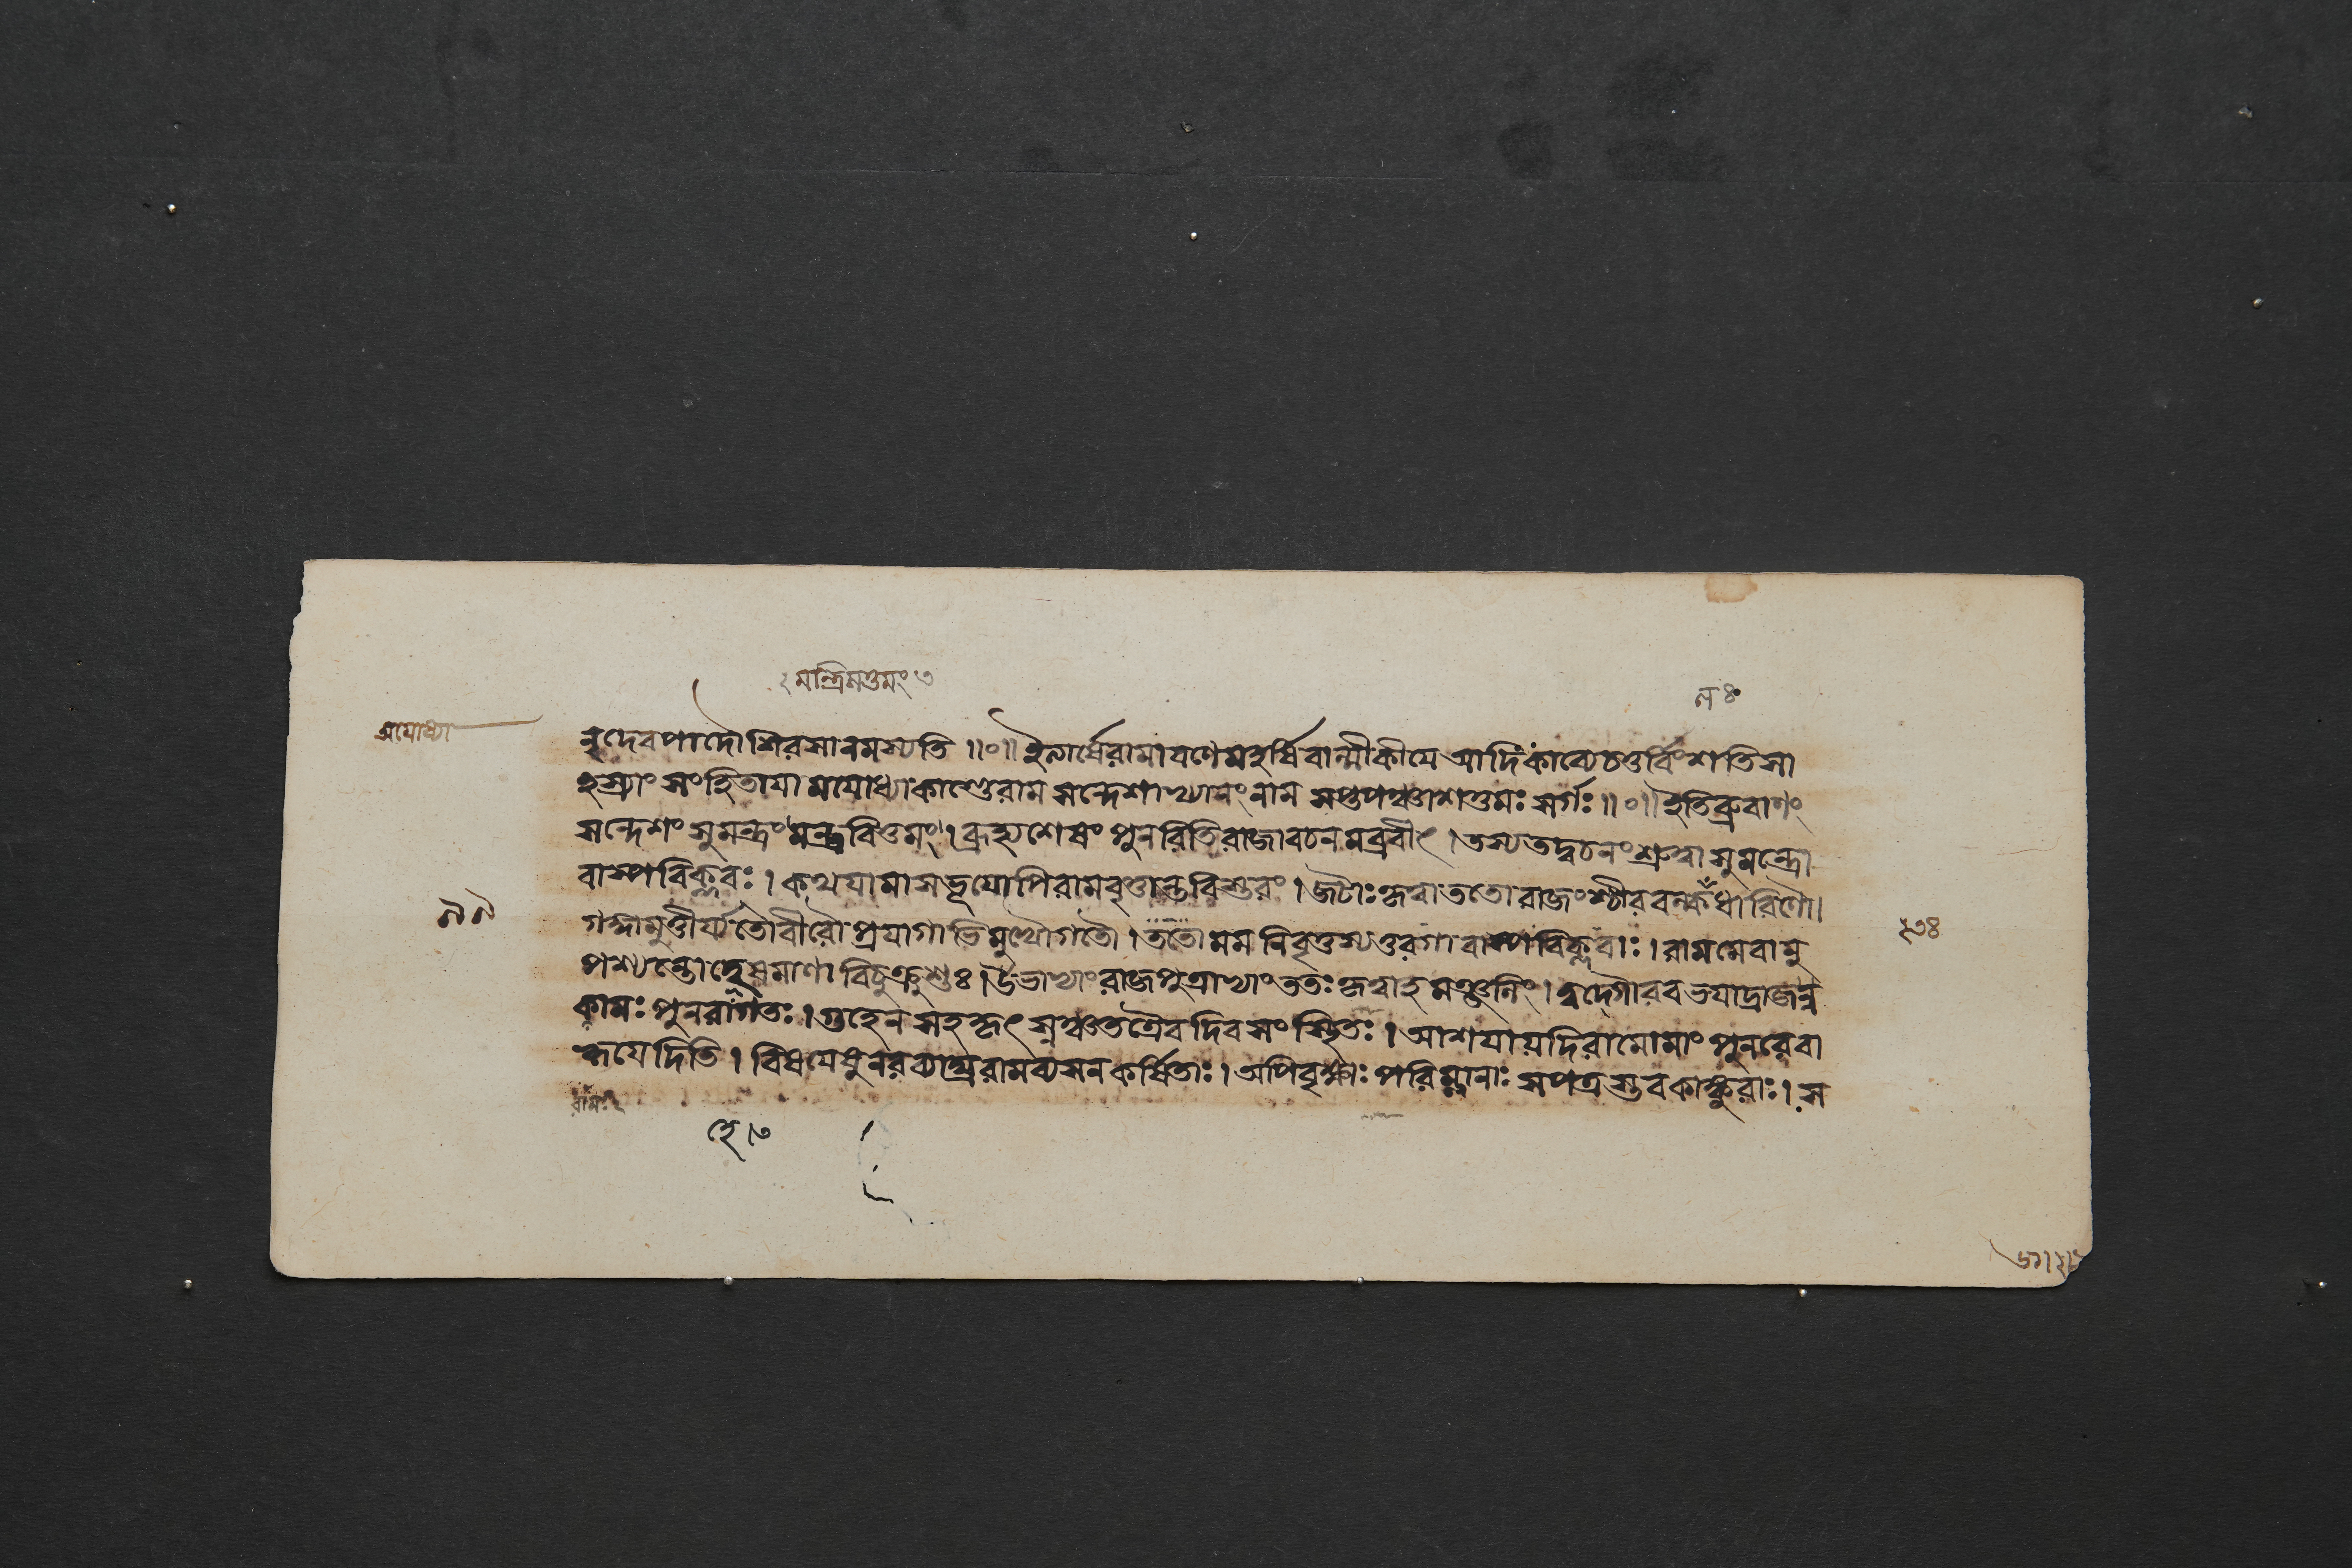 মন্ত্রিসত্তমং ৩
অযোধ্যা
ন্নৃদেবপাদৌ শিরসা নমস্যতি ॥০॥ ইত্যার্ষে রামায়ণে মহর্ষিবাল্মীকীয়ে আদিকাব্যে চতুর্বিংশতিসা
হস্র্যাং সংহিতায়ামযোধ্যাকাণ্ডে রামসন্দেশাখ্যানং নাম সপ্তপঞ্চাশত্তমঃ সর্গঃ ॥০॥ ইতি ব্রুবাণং
সন্দেশং সুমন্ত্রং মন্ত্রবিত্তমং । ব্রূহ্যশেষং পুনরিতি রাজা বচনমব্রবীৎ । তস্য তদ্বচনং শ্রুত্বা সুমন্ত্রো
বাস্পবিক্লবঃ । কথয়ামাস ভূয়োপি রামবৃত্তান্তবিস্তরং । জটাঃ কৃত্বা ততো রাজংশ্চীরবল্কলধারিণৌ ।
গঙ্গামুত্তীর্য্য তৌ বীরৌ প্রয়াগাভিমুখৌ গতৌ । ততো মম নিবৃত্তস্য তুরগা বাস্পবিক্লবাঃ । রামমেবানু
পশ্যন্তো হেষমাণা বিচুক্রুশুঃ । উভাভ্যাং রাজপুত্রাভ্যাং ততঃ কৃত্বাহমঞ্জলিং । ত্বদ্গৌরবভয়াদ্রাজন্ন
কামঃ পুনরাগতঃ । গুহেন সহ কৃৎস্নঞ্চ তত্রৈব দিবসং স্থিতঃ । আশয়া যদি রামো মাং পুনরেবা
হ্বয়েদিতি । বিষয়ে পুনরপ্যাপ্ত রামব্যসনকর্ষিতাঃ । অপি বৃক্ষাঃ পরিম্লানাঃ সপত্রস্তবকাঙ্কুরাঃ । স
৯৯
রামঃ
হে।৩